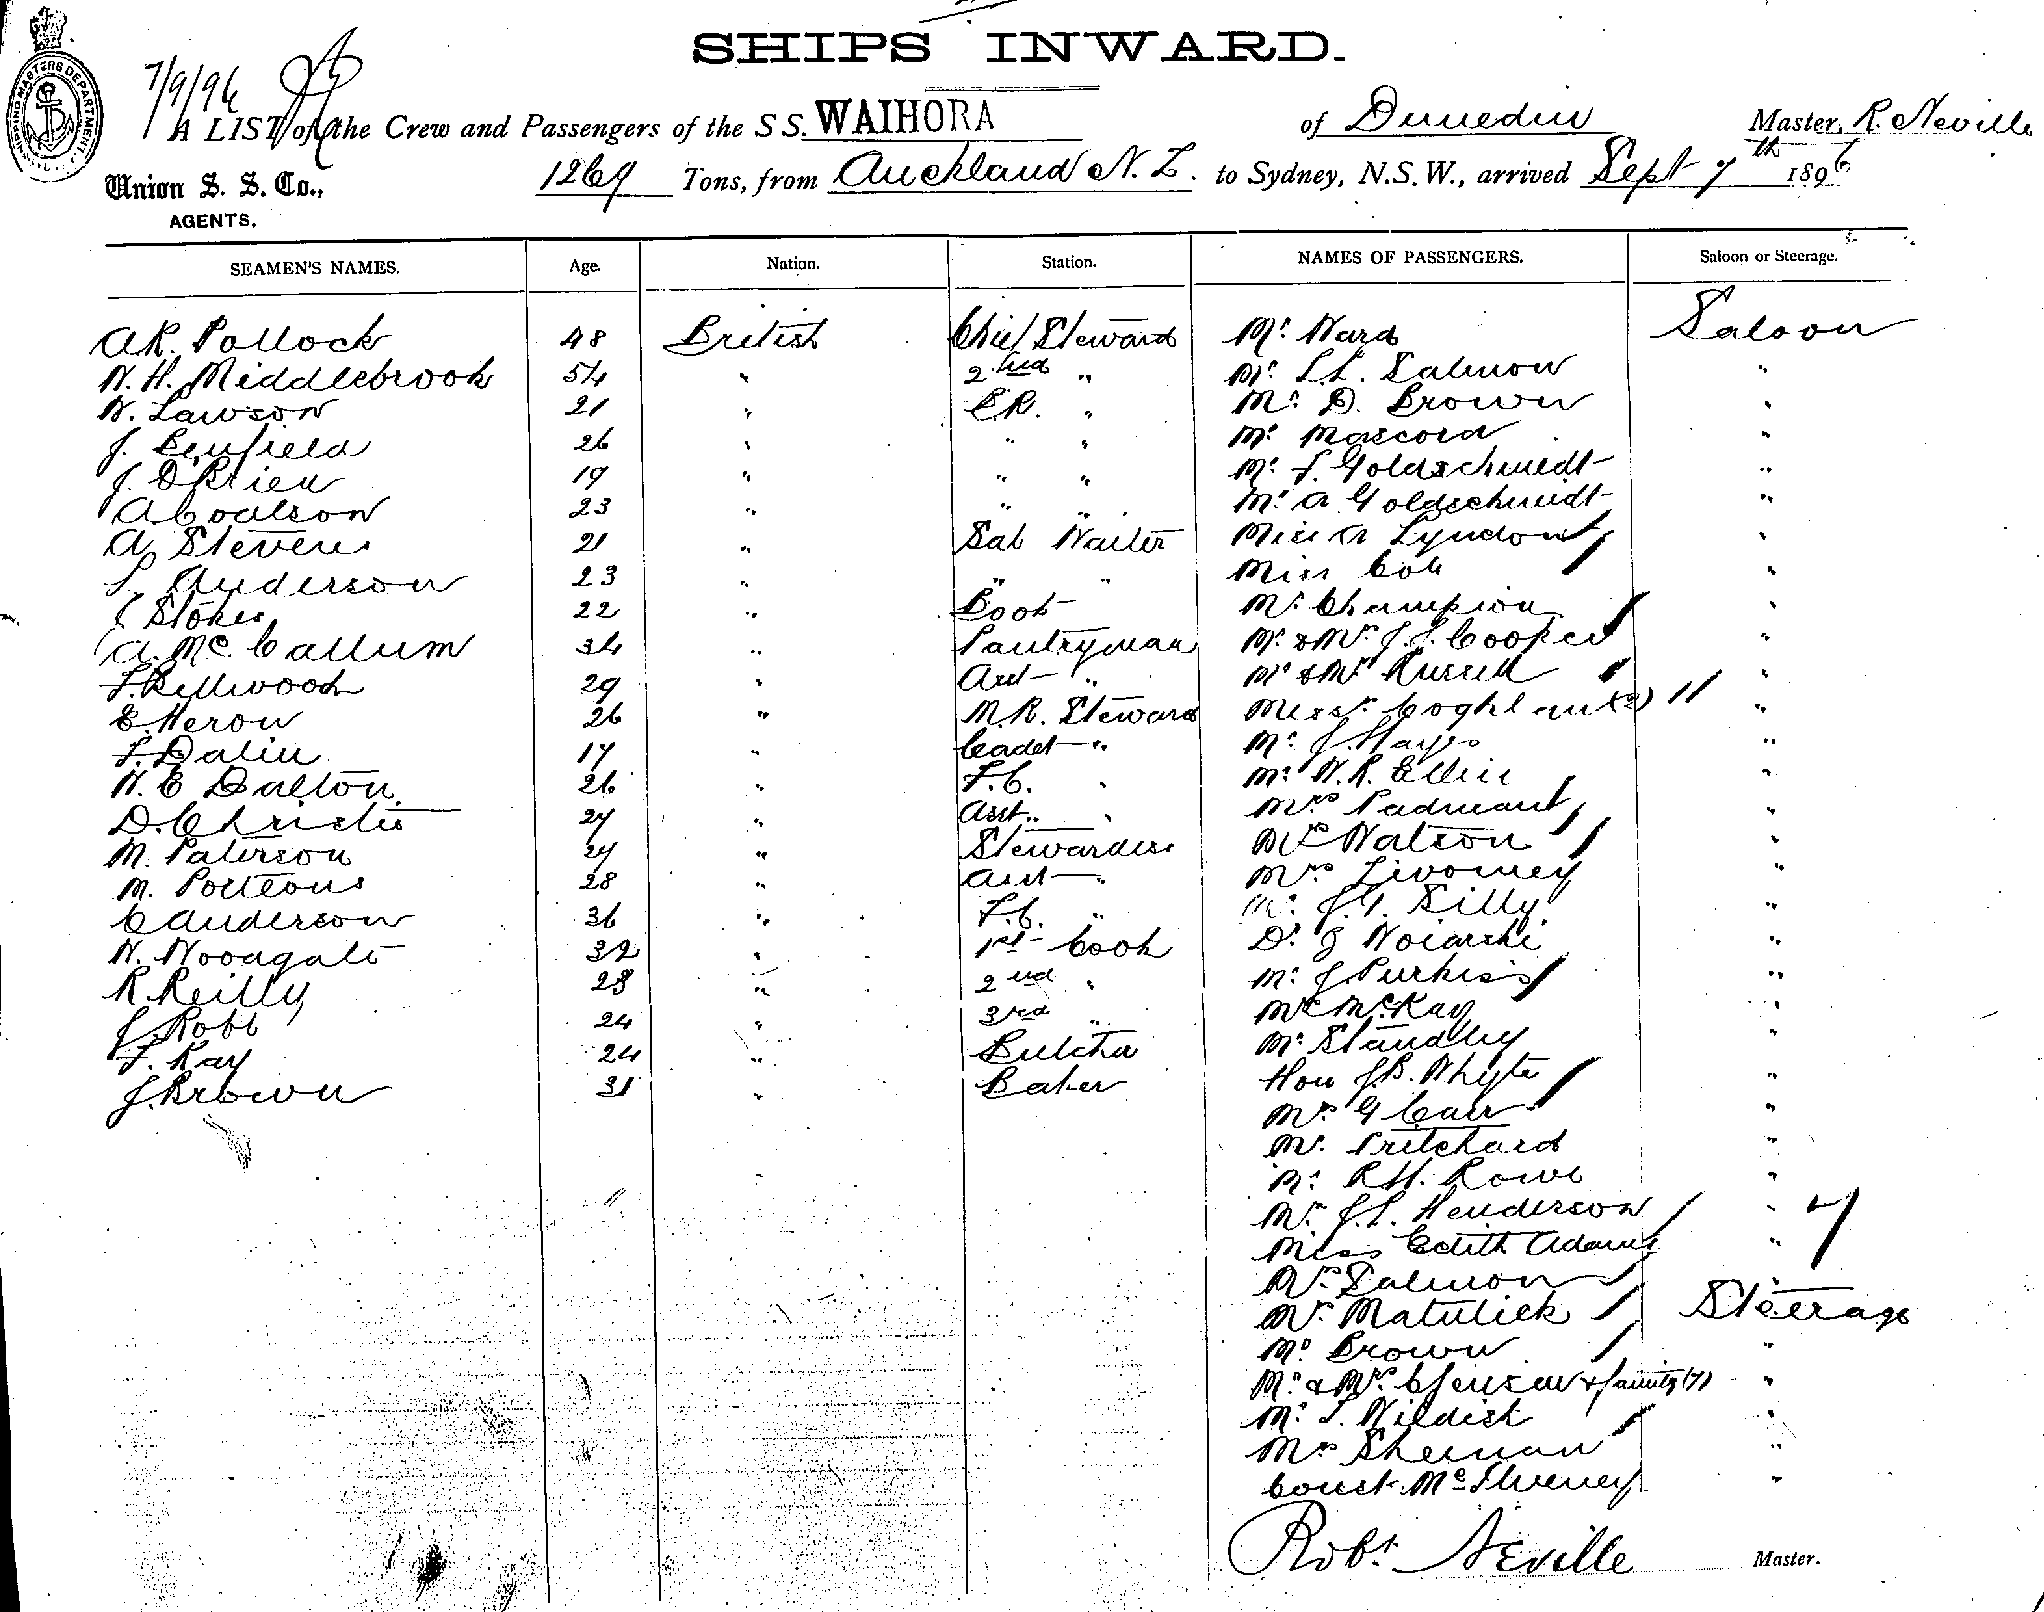 SHIPS INWARD.
7/9/96
A LIST of the Crew and Passengers of the S S. WAIHORA of Dunedin Master, R. Neville
SHIPPING MASTERS DEPARTMENT
Union S. S. Co., 1269 Tons, from Auckland N. Z. to Sydney, N.S.W., arrived Sept 7th 1896
AGENTS.
SEAMEN'S NAMES. Age. Nation. Station. NAMES OF PASSENGERS. Saloon or Steerage.
A R. Pollock 48 British Chief Steward Mr Ward Saloon
W. H. Middlebrook 54 " 2nd " Mr L.L. Salmon "
W. Lawson 21 " B.R. " Mr D. Brown "
J. Benfield 26 " " " Mr Maccord "
J. O'Brien 19 " " " Mr F Goldschmidt "
A Coulson 23 " " " Mr A Goldschmidt "
A. Stevens 21 " Sal Waiter Miss A Lyndon "
Anderson 23 " " " Miss "
Stokes 22 " Cook Mr Champion "
A. McCallum 34 " Pantryman Mr & Mrs J. J. Cooper "
F. Bellwood 29 " Asst " Mr & Mrs Russell "
E. Heron 26 " M.R. Steward Misses Coghlan (2) 11 "
F. Dalin 17 " Cadet " Mr J. Hayes "
W. E Dalton 26 " F.C. " Mr W. R. Ellis "
D. Christie 27 " Asst " " Mrs Padmant "
M. Paterson 27 " Stewardess Mrs Watson "
M. Porteous 28 " Asst " Mrs Livorney "
C Anderson 36 " F.C. " Mr J. G. Silly "
W. Woodgate 32 " 1st Cook Dr J "
R. Reilly 28 " 2nd " Mr J Purkiss "
J. Robb 24 " 3rd " Mr McKay "
F. Kay 24 " Butcher Mr Standley "
J. Brown 31 " Baker Hon J. B. Whyte "
Mr G Carr "
Mr Pritchard "
Mr R H. Rowe "
Mr J. L. Henderson " 7
Miss Edith Adams "
Mrs Salmon "
Mr Matulick Steerage
Mr Brown "
Mr & Mrs Clausen & family (7) "
Mr S. Wildish "
Mrs Sherman "
Const. McIlveney "
Robt Neville Master.